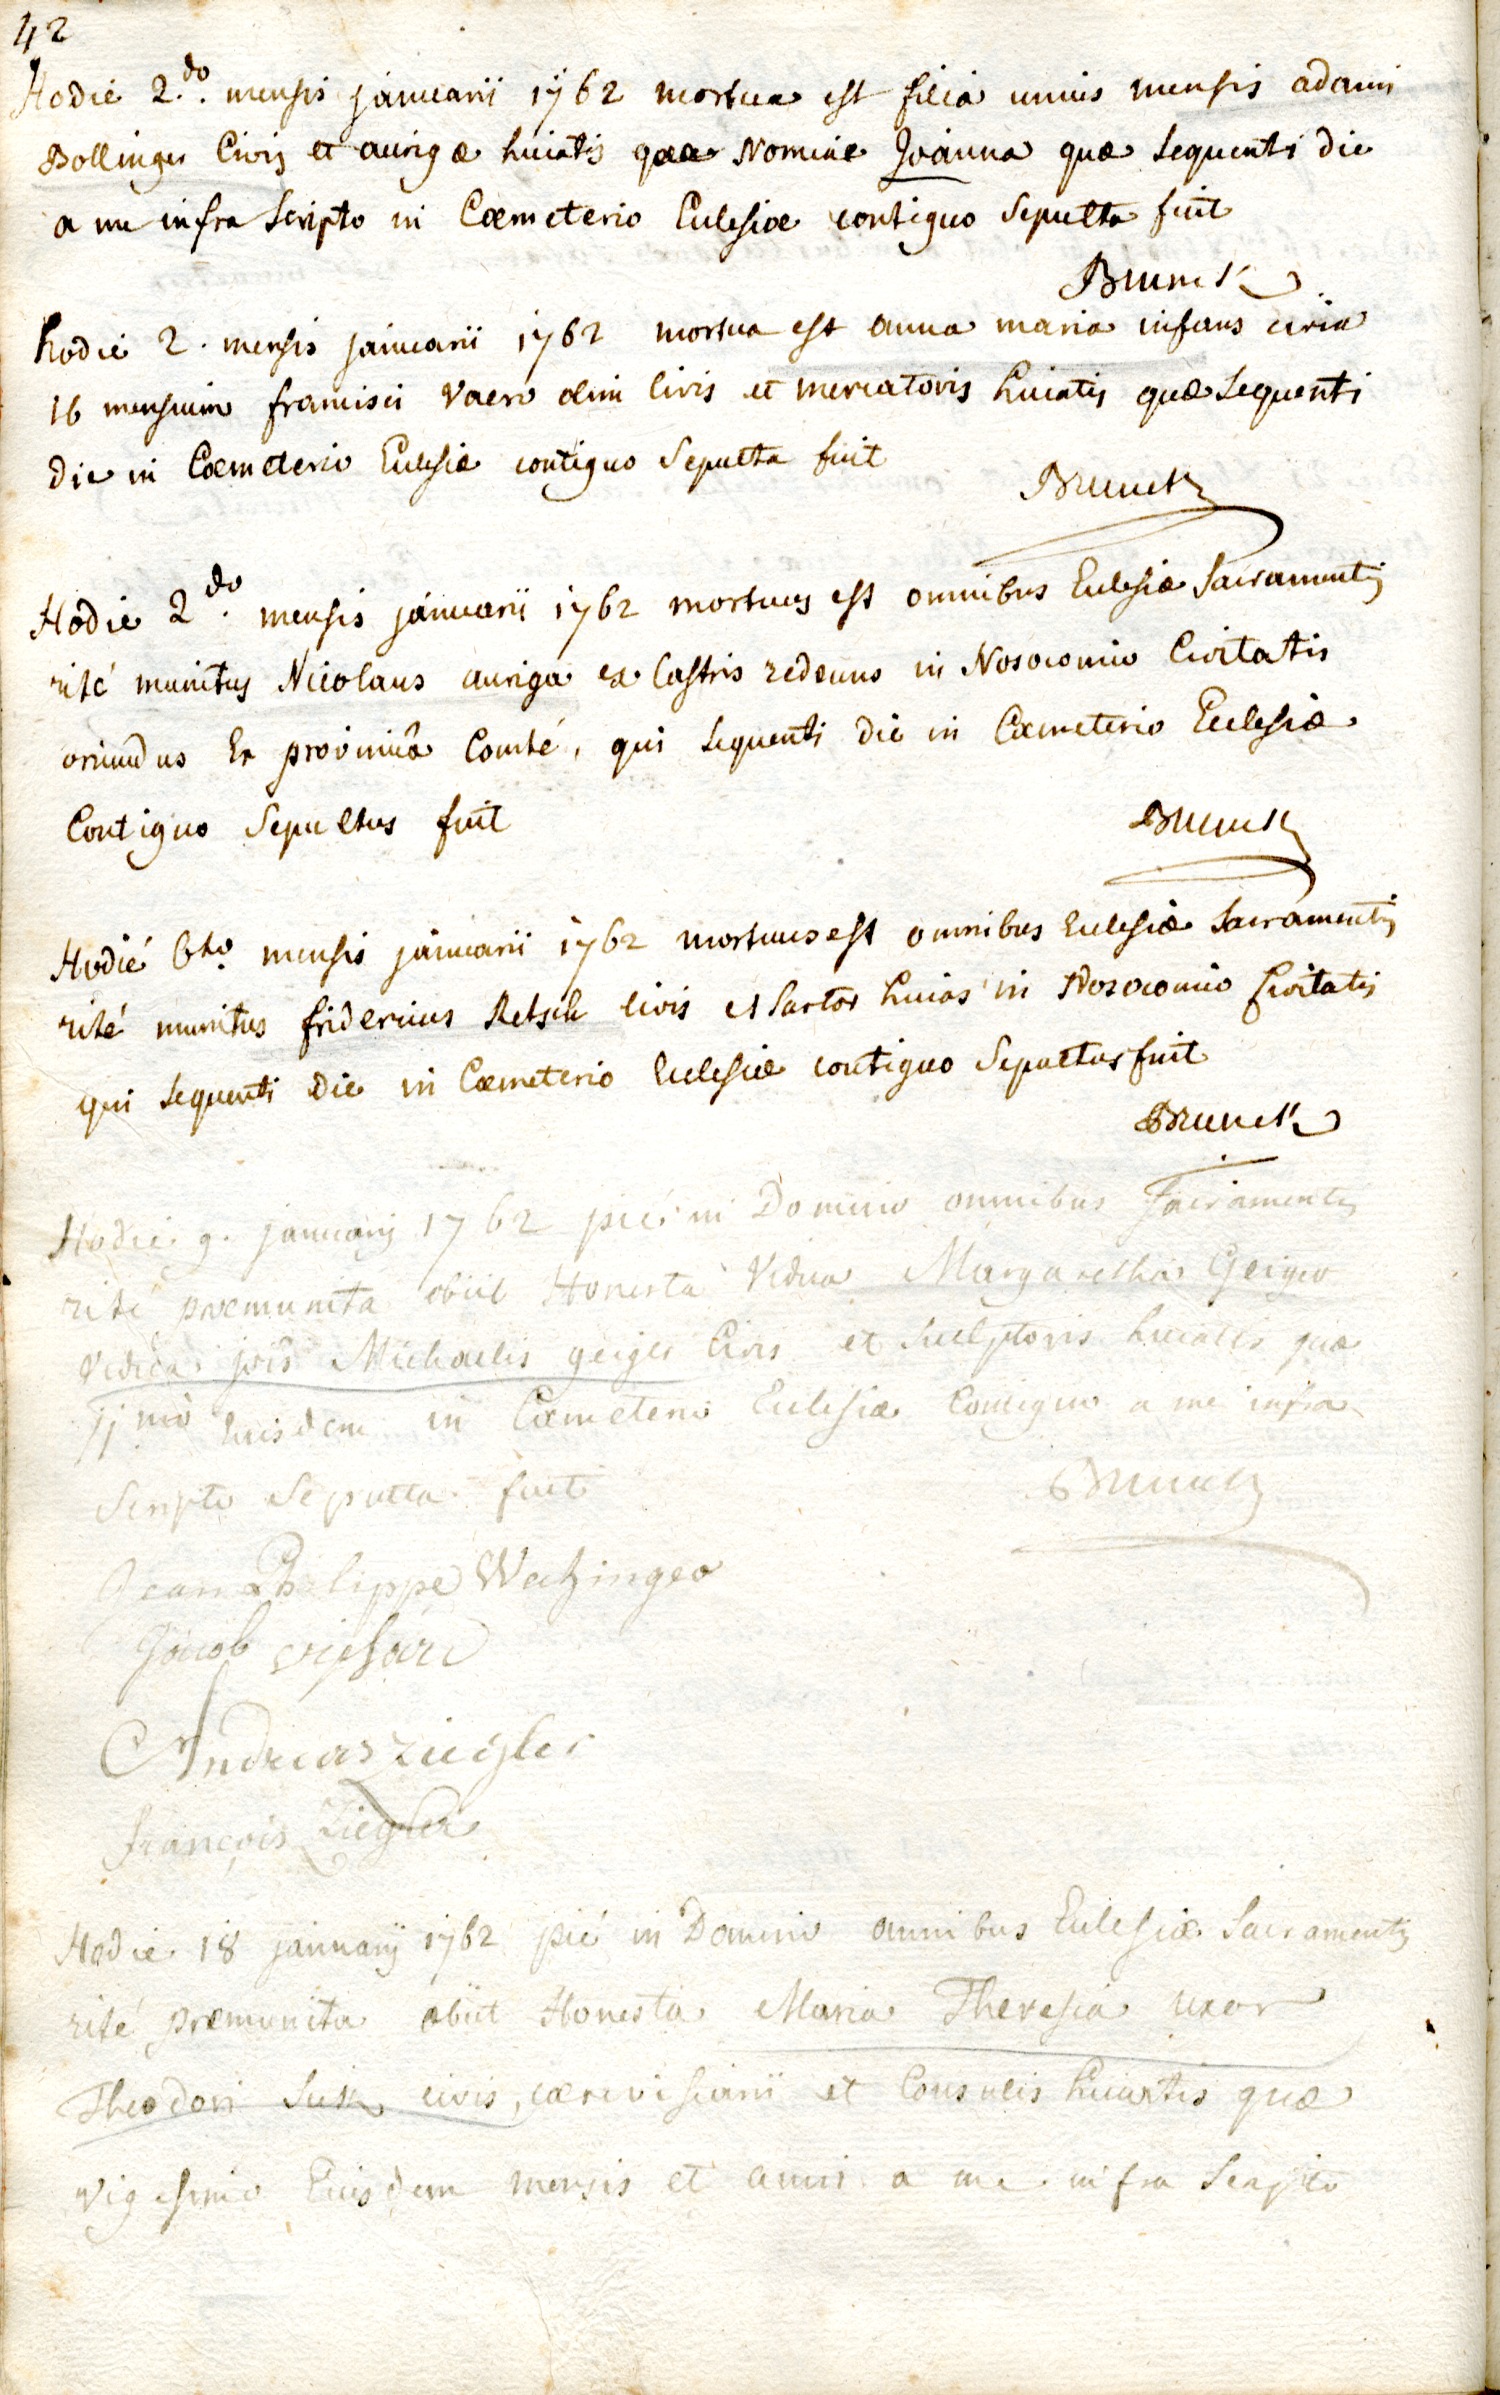 42
Hodie 2.do mensis januarii 1762 mortua est filia unius mensis adami
Bollinger Civis et aurigæ huiatis quæ Nomine Joanna quæ sequenti die
a me infra scripto in Cœmeterio Eclesiæ contiguo sepulta fuit
Brunck
hodie 2. mensis januarii 1762 mortua est anna maria infans
16 mensium francisci olim civis et mercatoris huiatis quæ sequenti
die in Cœmeterio Eclesiæ contiguo sepulta fuit
Brunck
Hodie 2do. mensis januarii 1762 mortuus est omnibus Eclesiæ Sacramentis
rité munitus Nicolaus auriga ex Castris rediens in Nosocomio Civitatis
oriundus Ex provinciâ Comté, qui sequenti die in Cœmeterio Ecclesiæ
Contiguo Sepultus fuit
Brunck
Hodié 6to. mensis januarii 1762 mortuus est omnibus Eclesiæ Sacramentis
rité munitus fridericus Retsch civis et Sartor huias in Nosocomio Civitatis
qui sequenti Die in Cœmeterio Ecclesiæ contiguo Sepultus fuit
Brunck
Hodie 9. januarij 1762 pié in Domino omnibus Sacramentis
rité præmunita obiit Honesta Vidua Margaretha Geiger
Vidua jois Michaelis geiger Civis et Sculptoris huiatis quæ
11mo huisdem in Cœmeterio Eclesiæ Contiguo a me infra
Scripto Sepulta fuit
Brunck
Jean Philippe Watzinger
Jacob
Andreas Ziegler
françois Ziegler
Hodie 18 januarij 1762 pié in Domino omnibus Eclesiæ Sacramentis
rité præmunita obiit Honesta Maria Theresia uxor
Theodori civis, cærevisiarii et Consulis huiatis quæ
vigesimo Eiusdem mensis et anni a me infra Scripto